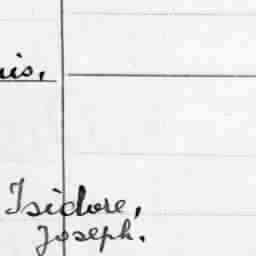 is,
Isidore,
Joseph.